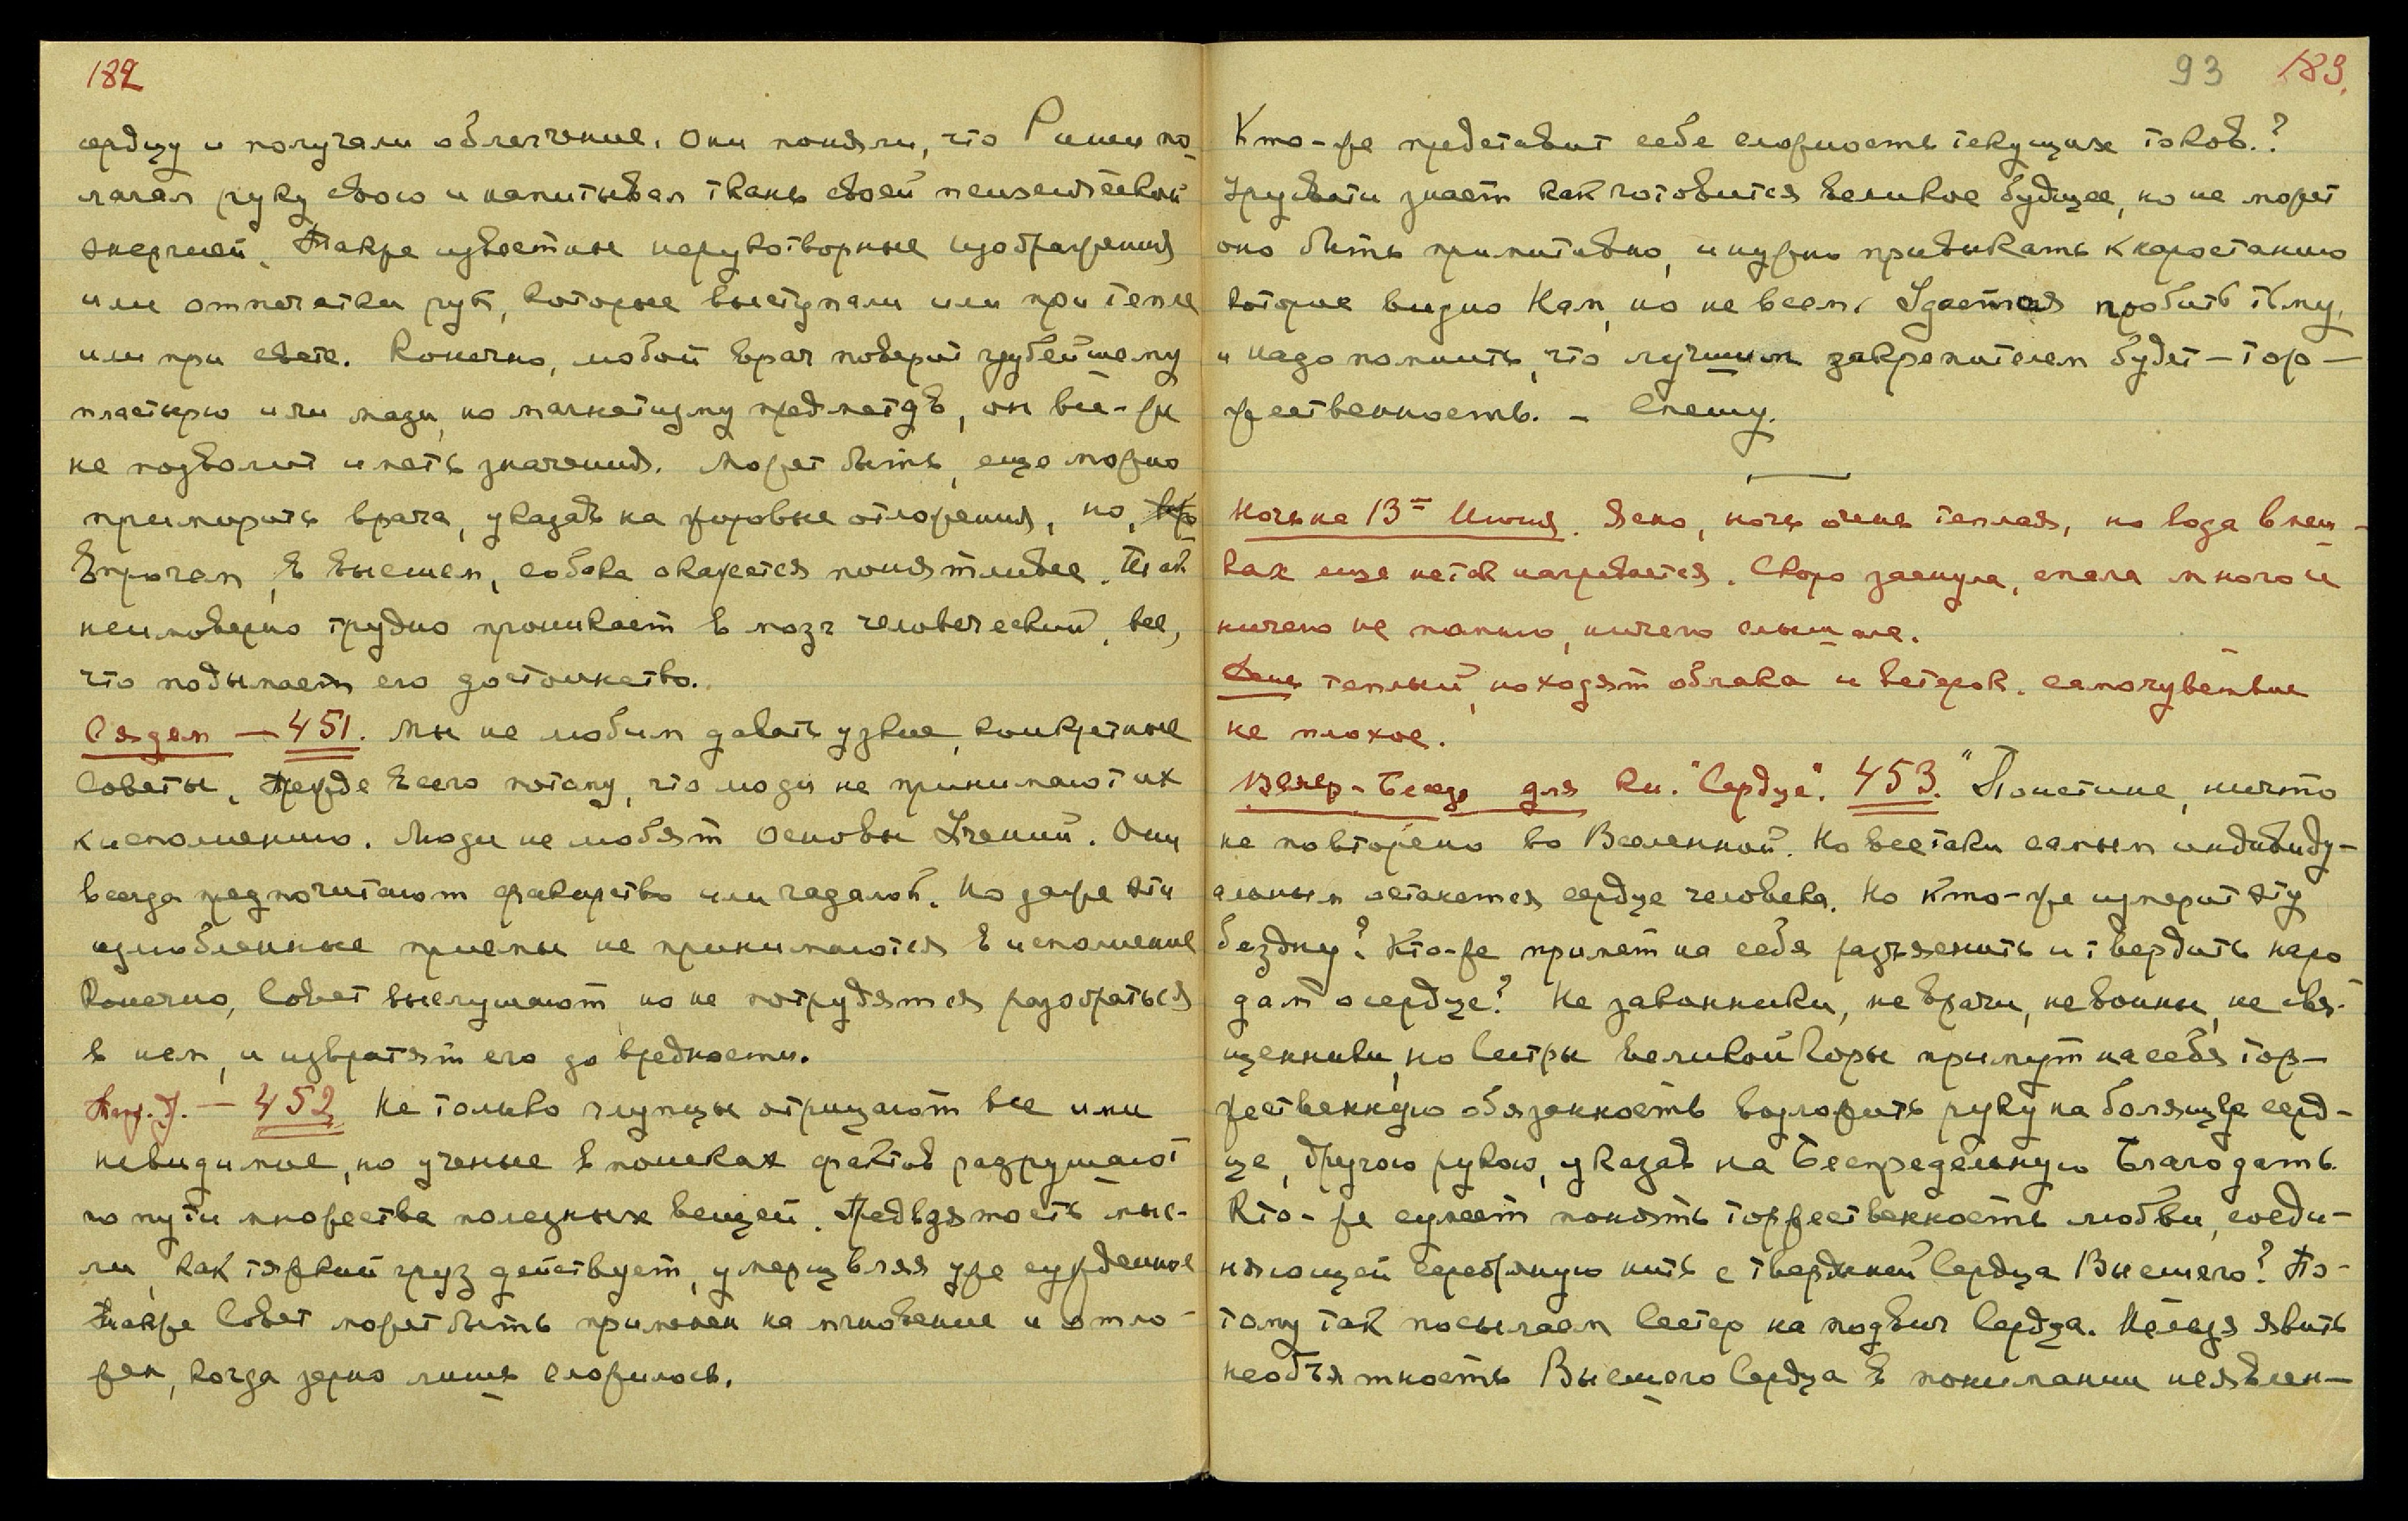 182
сердцу и получали облегчение. Они поняли, что Риши по-
лагал руку свою и напитывал ткань своей психической
энергией. Также известные нерукотворные изображения
или отпечатки рук, которые выступали или при тепле
или при свете. Конечно, любой врач поверит грубейшему
пластырю или мази, но магнетизму предметов, он все-же
не позволит иметь значения. Может быть, еще можно
примирить врача, указав на жировые отложения, но,
впрочем, в высшем, собака окажется понятливее. Так
неимоверно трудно проникает в мозг человеческий, все,
что подымает его достоинство.
Сядем — 451. Мы не любим давать узкие, конкретные
Советы, прежде всего потому, что люди не принимают их
к исполнению. Люди не любят Основы Учений. Они
всегда предпочитают факирство или гадалок. Но даже эти
излюбленные приемы не принимаются в исполнение
Конечно, Совет выслушают, но не потрудятся разобраться
в нем, и извратят его до вредности.
452 Не только глупцы отрицают все ими
невидимое, но ученые в поисках фактов разрушают
по пути множества полезных вещей. Предвзятость мыс-
ли, как тяжкий груз действует, умерщвляя уже сужденное
Также Совет может быть применен на мгновение и отло-
жен, когда зерно лишь сложилось.
93 183.
Кто-же представит себе сложность текущих токов.?
Урусвати знает как готовится великое будущее, но не может
оно быть примитивно, и нужно привыкать к нарастанию
которое видно Нам, но не всем. Удается пробить тьму,
и надо помнить, что лучшим закрепителем будет — тор-
жественность. — Спешу.
Ночь на 13-ое Июня. Ясно, ночь очень теплая, но вода в меш-
ках еще не так нагревается. Скоро заснула, спала много и
ничего не помню, ничего слышала.
День теплый, но ходят облака и ветерок. Самочувствие
не плохое.
Вечер - Беседа для кн. "Сердце". 453. "Поистине, ничто
не повторено во Вселенной. Но все таки самым индивиду-
альным останется сердце человека. Но кто-же измерит эту
бездну? Кто-же примет на себя разъяснить и твердить наро
дам о сердце? Не законники, не врачи, не воины, не свя-
щенники, но Сестры великой Горы примут на себя тор-
жественную обязанность возложить руку на болящее серд-
це, другою рукою, указав на Беспредельную Благодать.
Кто-же сумеет понять торжественность любви, соеди-
няющей серебряную нить с твердыней Сердца Высшего? По-
тому так посылаем Сестер на подвиг Сердца. Нельзя явить
необъятность Высшего Сердца в понимании неявлен-